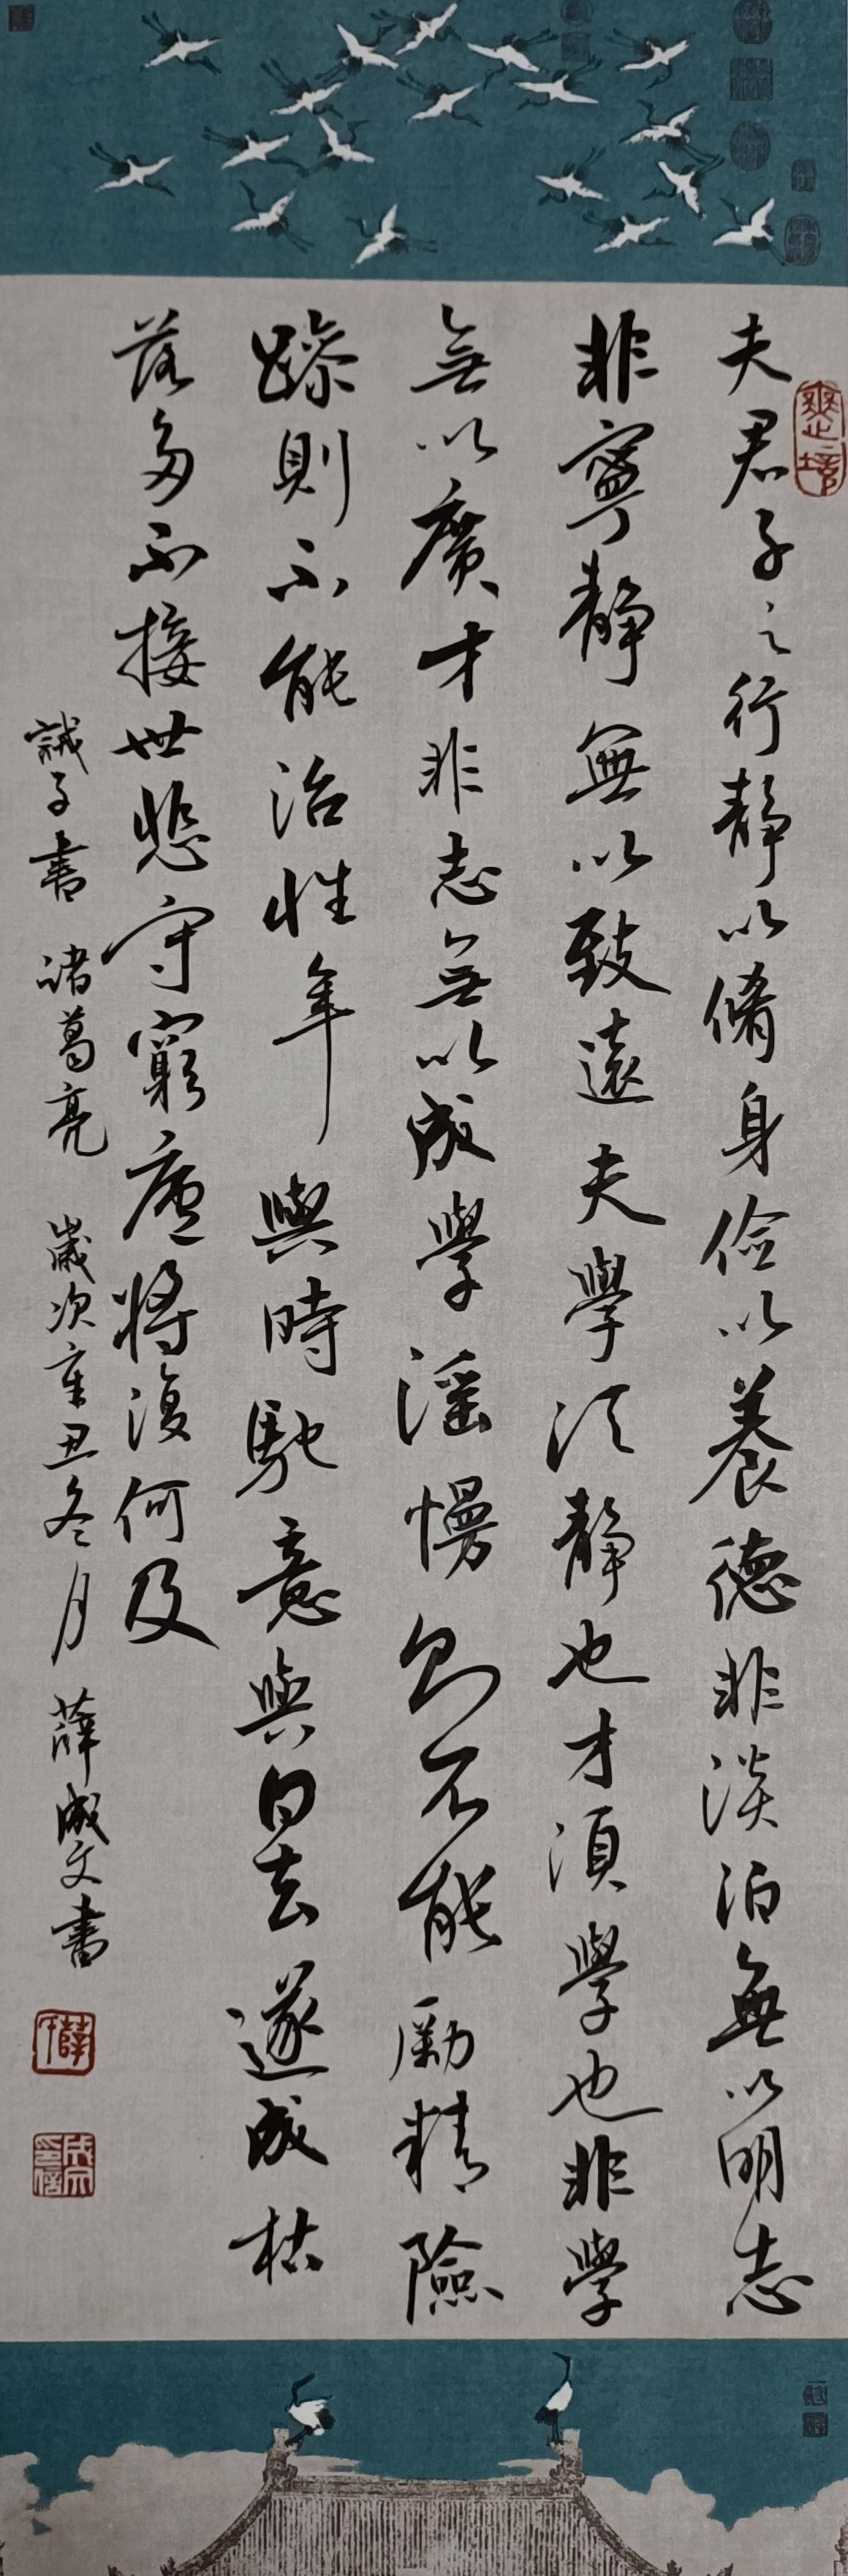 夫君子之行靜以脩身儉以養德非淡泊無以明志
非寧靜無以致遠夫學須靜也才須學也非學
無以廣才非志無以成學淫慢則不能勵精險
躁則不能治性年與時馳意與日去遂成枯
落多不接世悲守窮廬將復何及
誡子書 諸葛亮 歲次辛丑冬月 薛成文書